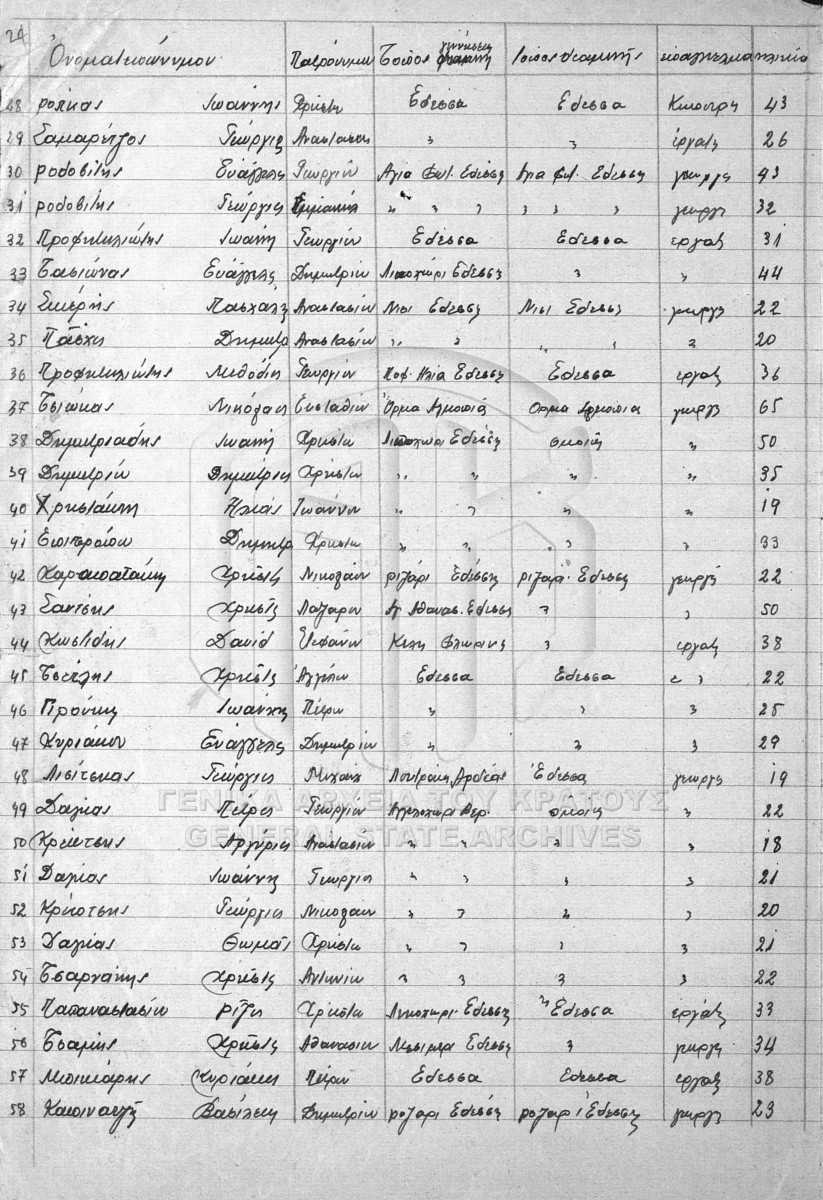 24
Ὀνοματεπώνυμον Πατρώνυμον Τόπος γεννήσεως Τόπος διαμονῆς ἐπάγγελμα ἡλικία
28 Ρόπκας Ἰωάννης Χρήστου Ἔδεσσα Ἔδεσσα 43
29 Σαμαρέτζος Γεώργιος Αναστασίου " " ἐργάτης 26
30 Ροδοβίτης Εὐάγγελος Γεωργίου Ἁγία Φωτ. Ἐδέσσης Ἁγία Φωτ. Ἐδέσσης γεωργός 43
31 Ροδοβίτης Γεώργιος " " " " " " γεωργ. 32
32 Προφητηλιώτης Ἰωάννης Γεωργίου Ἔδεσσα Ἔδεσσα ἐργάτ. 31
33 Τασιώνας Εὐάγγελος Δημητρίου Λυκοχώρι Ἐδέσσης " " 44
34 Πασχάλης Αναστασίου Νησί Ἐδέσσης Νησί Ἐδέσσης γεωργός 22
35 Πάσχος Δημήτρ. Αναστασίου " " " " " 20
36 Προφητηλιώτης Μεθόδιος Γεωργίου Προφ. Ηλία Ἐδέσσης Ἔδεσσα ἐργάτ. 36
37 Τσιώκας Νικόλαος Εὐσταθίου Ὄρμα Ἀλμωπίας Ὄρμα Ἀλμωπίας γεωργός 65
38 Δημητριάδης Ἰωάννης Χρήστου Λυκοχώρι Ἐδέσσης ὁμοίως " 50
39 Δημητρίου Δημήτριος Χρήστου " " " " 35
40 Χρηστάκης Ηλίας Ἰωάννου " " " " 19
41 Δημήτρ. Χρήστου " " " " 33
42 Χρῆστος Νικολάου Ριζάρι Ἐδέσσης Ριζάρι Ἐδέσσης γεωργός 22
43 Σαντσης Χρῆστος Λαζάρου Αγ. Αθανασ. Ἐδέσσης " " 50
44 Κωστίδης Δαυίδ Στεφάνου Κέλη Φλωρίνης " ἐργάτ. 38
45 Χρῆστος Ἀγγέλου Ἔδεσσα Ἔδεσσα " " 22
46 Πρόντης Ἰωάννης Πέτρου " " " 25
47 Κυριάκου Εὐάγγελος Δημητρίου " " " 29
48 Λισίτσκας Γεώργιος Μιχαήλ Λουτράκι Αρδέας Ἔδεσσα γεωργός 19
49 Δαγκας Πέτρος Γεωργίου Αγγελοχώρι Βερ. ὁμοίως " 22
50 Κρέστσης Ἀργύριος Αναστασίου " " " " 18
51 Ἰωάννης Γεωργίου " " " " 21
52 Κρέστσης Γεώργιος Νικολάου " " " " 20
53 Θωμᾶς Χρήστου " " " " 21
54 Τσαρνάκης Χρῆστος Αντωνίου " " " " 22
55 Παπαναστασίου Ρίζος Χρήστου Λυκοχώρι Ἐδέσσης " Ἔδεσσα ἐργάτης 33
56 Τσαμης Χρῆστος Αθανασίου Μεσιμέρι Ἐδέσσης " γεωργός 34
57 Κυριάκος Πέτρου Ἔδεσσα Ἔδεσσα ἐργάτ. 38
58 Βασίλειος Δημητρίου Ριζάρι Ἐδέσσης Ριζάρι Ἐδέσσης γεωργ. 23
ΓΕΝΙΚΑ ΑΡΧΕΙΑ ΤΟΥ ΚΡΑΤΟΥΣ
GENERAL STATE ARCHIVES